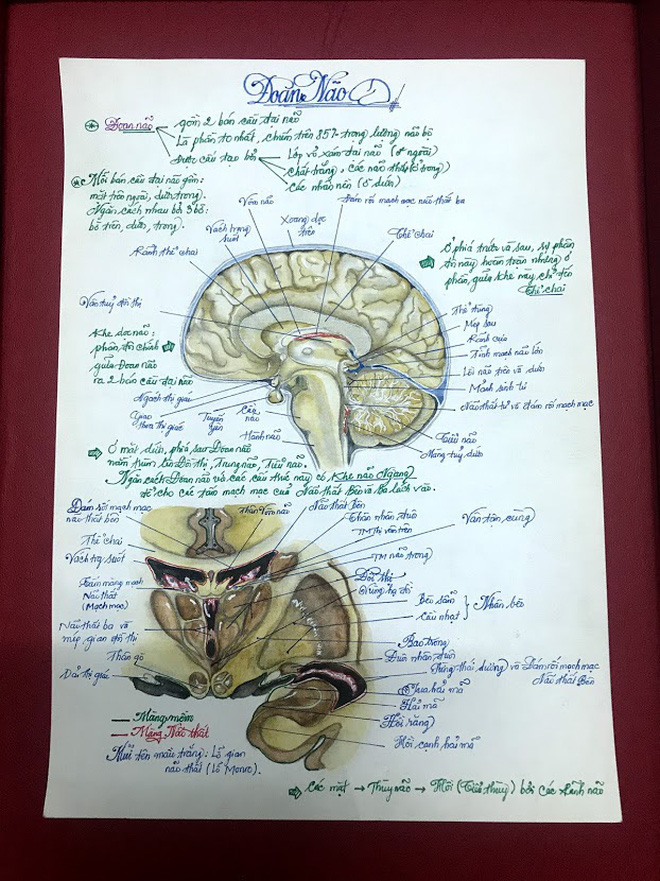 Đoan Não
Đoan não
gồm 2 bán cầu đại não
Là phần to nhất, chiếm trên 85% trọng lượng não bộ
Được cấu tạo bởi
Lớp vỏ xám đại não (ở ngoài)
chất trắng, các não thất (ở trong)
các nhân nền (ở dưới)
Mỗi bán cầu đại não gồm: 3
mặt trên ngoài, dưới, trong).
Ngăn cách nhau bởi 3 bờ:
bờ trên, dưới, trong).
Vòm não
Đám rối mạch mạc não thất ba
Vách trong suốt
Xoang dọc trên
Thể chai
Rãnh thể chai
Ở phía trước và sau, sự phân
này hoàn toàn nhưng ở
phần giữa khe này, chỉ tới
Thể chai
Vân tuỷ đồi thị
Thể tùng
Mép sau
Rãnh cựa
Tĩnh mạch não lớn
Lồi não trên và dưới
Mảnh sinh tư
Não thất tư và đám rối mạch mạc
Khe dọc não:
phân chính
giữa Đoan não
ra 2 bán cầu đại não
Ngách thị giác
Giao thoa thị giác
Tuyến yên
Cầu não
Hành não
Tiểu não
Màng tuỷ dưới
Ở mặt dưới, phía sau Đoan não
nằm trùm lên Đồi thị, Trung não, Tiểu não.
Ngăn cách Đoan não và các cấu trúc này có Khe não Ngang
để cho các tấm mạch mạc của Não thất Bên và Ba lách vào.
Đám rối mạch mạc
não thất bên
Thân Vòm não
Não thất Bên
Thân nhân đuôi
TM Thị vân trên
Vân tận cùng
Thể chai
Vách trg suốt
TM não trong
Tấm màng mạch
Não thất
(Mạch mạc)
Đồi thị
Vùng hạ đồi
Bèo sẫm
Cầu nhạt
Nhân bèo
Não thất ba và
mép gian đồi thị
Bao trong
Thần gõ
Đuôi nhân đuôi
Dải thị giác
Sừng thái dương và Đám rối mạch mạc
Não thất Bên
Tua hải mã
Hải mã
Hồi răng
Hồi cạnh hải mã
Màng mềm
Màng Nội thất
Mũi tên màu trắng: Lỗ gian
não thất (Lỗ Monro).
Các mặt → Thùy não → Hồi (Tiểu thùy) bởi các Rãnh não